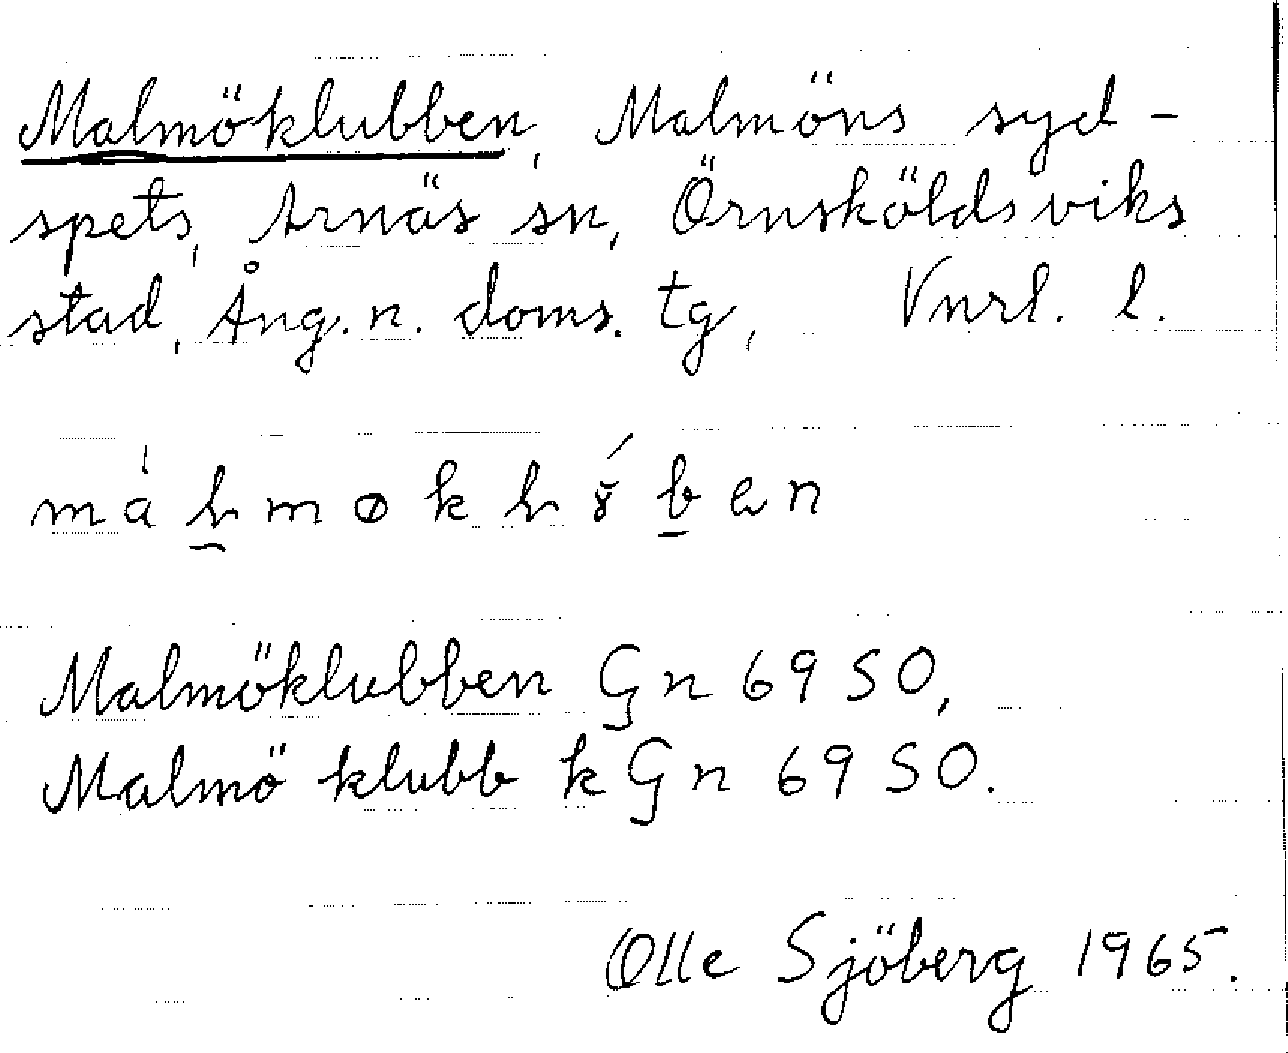 Malmöklubben, Malmöns syd-
spets, Arnäs sn, Örnsköldsviks
stad, Ång. n. doms. tg, Vnrl. l.
Malmöklubben Gn 69 SO,
Malmö klubb kGn 69 SO.
Olle Sjöberg 1965.